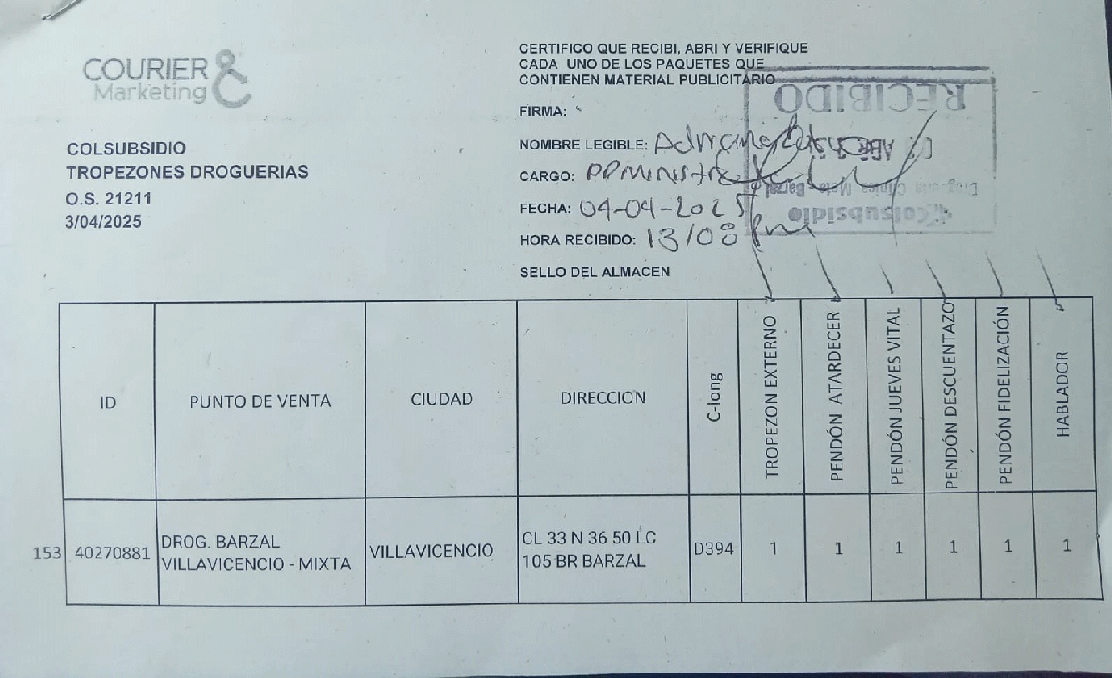 COURIER &
Marketing
COLSUBSIDIO
TROPEZONES DROGUERIAS
O.S. 21211
3/04/2025
CERTIFICO QUE RECIBI, ABRI Y VERIFIQUE
CADA UNO DE LOS PAQUETES QUE
CONTIENEN MATERIAL PUBLICITARIO
FIRMA:
NOMBRE LEGIBLE:
CARGO:
FECHA: 04-04-2025
HORA RECIBIDO: 13/08 pm
SELLO DEL ALMACEN
RECIBIDO
Colsubsidio
ID
PUNTO DE VENTA
CIUDAD
DIRECCION
C-long
TROPEZON EXTERNO
PENDÓN ATARDECER
PENDÓN JUEVES VITAL
PENDÓN DESCUENTAZO
PENDÓN FIDELIZACIÓN
HABLADOR
153 40270881 DROG. BARZAL VILLAVICENCIO - MIXTA VILLAVICENCIO CL 33 N 36 50 LC 105 BR BARZAL D394 1 1 1 1 1 1